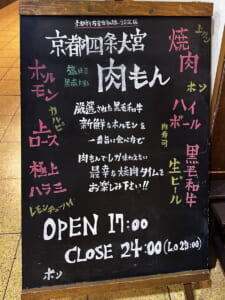 京都四条大宮
肉もん
焼肉
上タン
ホルモン
塩もミ
カルビ
上ロース
極上
ハラミ
レモンチューハイ
厳選された黒毛和牛
新鮮なホルモンを
一番旨い食べ方で
肉もんでしか味わえない
最幸な焼肉タイムを
お楽しみ下さい!!
ホソ
ハイボール
肉寿司
生ビール
黒毛和牛
OPEN 17:00
CLOSE 24:00 (Lo 23:00)
ホソ